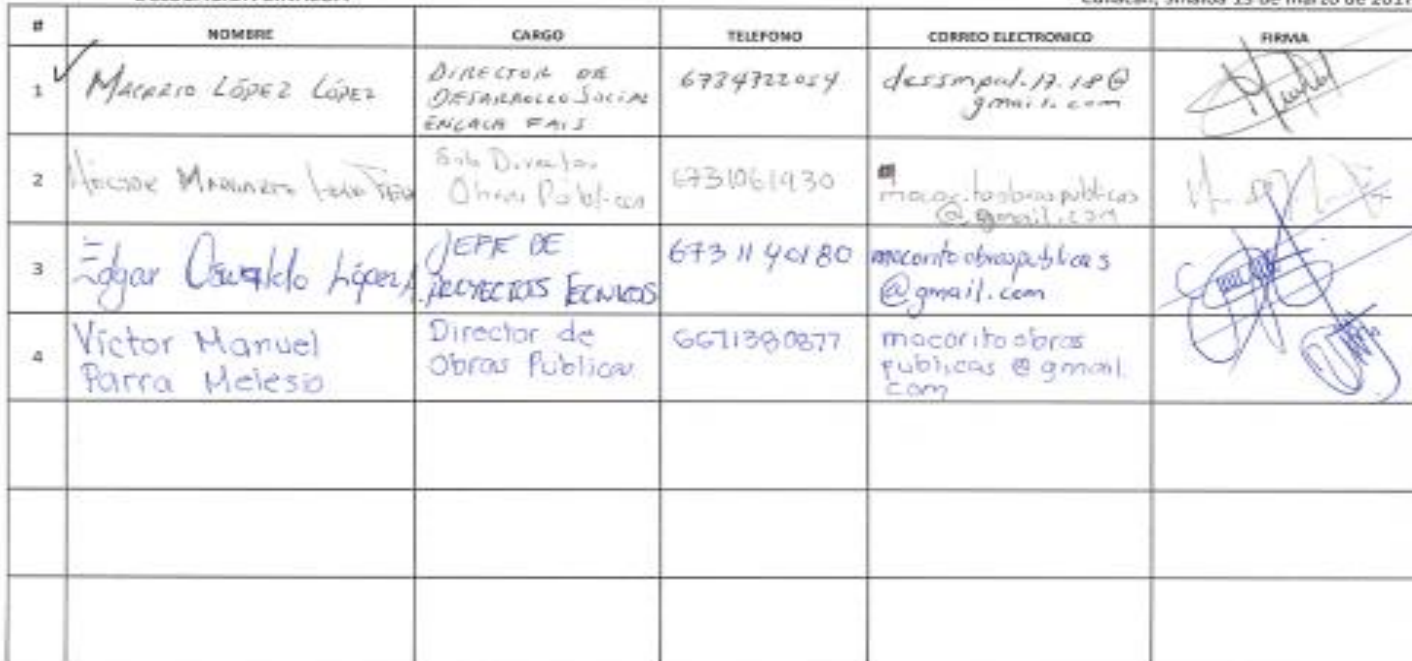 Culiacán, Sinaloa 15 de marzo de 2017
# NOMBRE CARGO TELEFONO CORREO ELECTRONICO FIRMA
1 MACARIO LÓPEZ LÓPEZ DIRECTOR DE DESARROLLO SOCIAL ENLACE FAIS 6734722054 dessmpal.17.18@gmail.com
2 Sub Director Obras Publicas 6731061930 mocoritoobraspublicas@gmail.com
3 Edgar Oswaldo López JEFE DE PROYECTOS 6731140180 mocoritoobraspublicas@gmail.com
4 Víctor Manuel Parra Melesio Director de Obras Publicas 6671380877 mocoritoobraspublicas@gmail.com